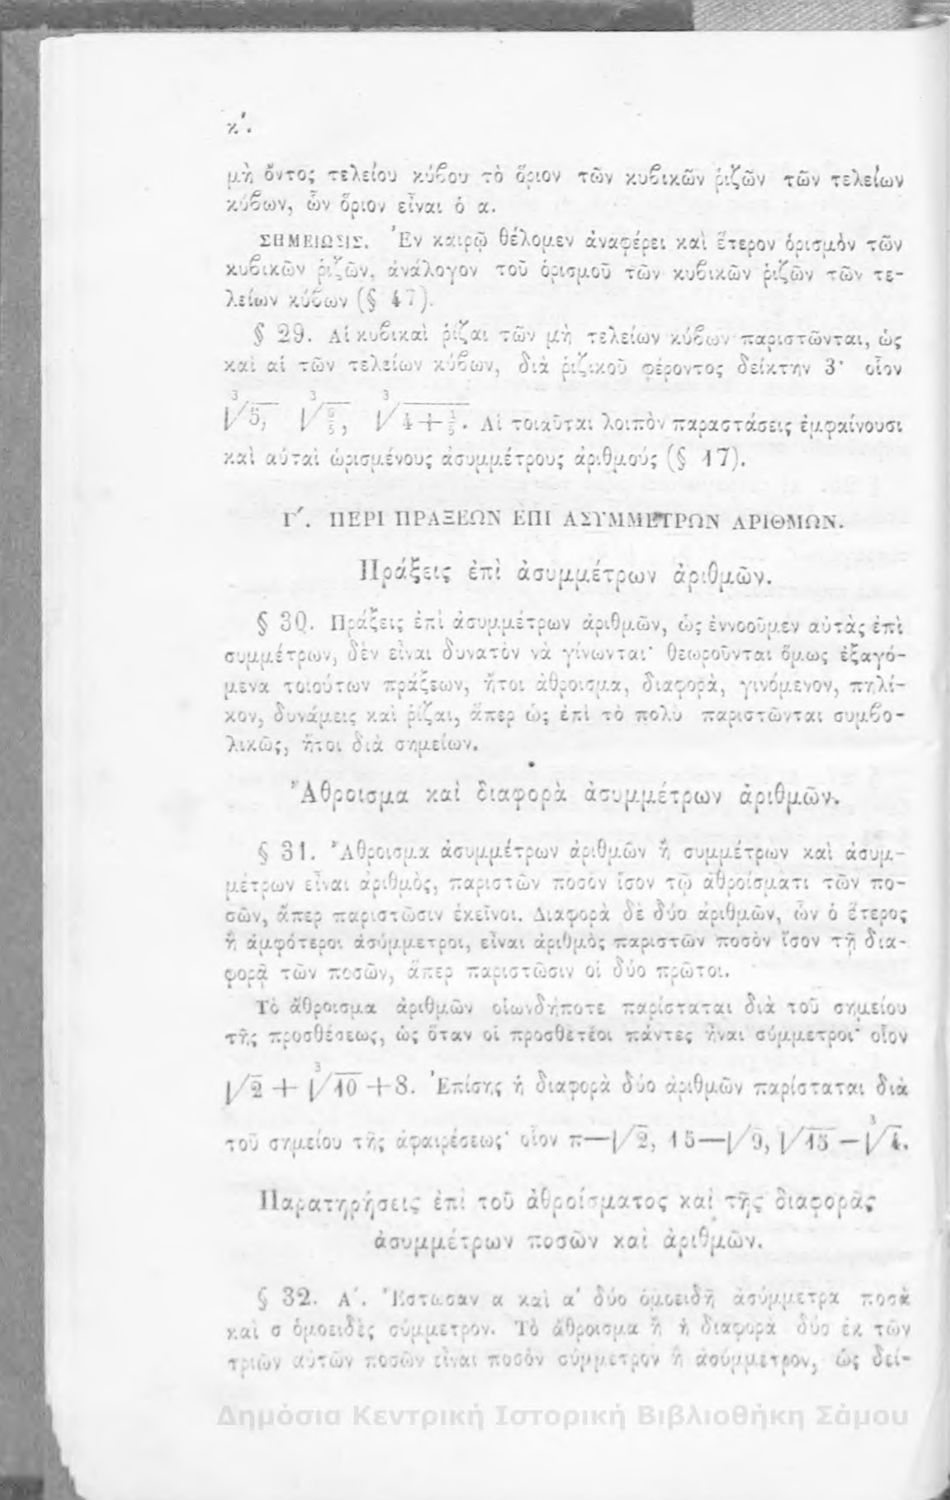 κ'.
μὴ ὄντος τελείου κύβου τὸ ὅριον τῶν κυβικῶν ῥιζῶν τῶν τελείων
κύβων, ὧν ὅριον εἶναι ὁ α.
ΣΗΜΕΙΩΣΙΣ. Ἐν καιρῷ θέλομεν ἀναφέρει καὶ ἕτερον ὁρισμὸν τῶν
κυβικῶν ῥιζῶν, ἀνάλογον τοῦ ὁρισμοῦ τῶν κυβικῶν ῥιζῶν τῶν τε-
λείων κύβων (§ 17).
§ 29. Αἱ κυβικαὶ ῥίζαι τῶν μὴ τελείων κύβων παριστῶνται, ὡς
καὶ αἱ τῶν τελείων κύβων, διὰ ῥιζικοῦ φέροντος δείκτην 3· οἷον
∛5, Αἱ τοιαῦται λοιπὸν παραστάσεις ἐμφαίνουσι
καὶ αὗται ὡρισμένους ἀσυμμέτρους ἀριθμούς (§ 17).
Γ'. ΠΕΡΙ ΠΡΑΞΕΩΝ ΕΠΙ ΑΣΥΜΜΕΤΡΩΝ ΑΡΙΘΜΩΝ.
Πράξεις ἐπὶ ἀσυμμέτρων ἀριθμῶν.
§ 30. Πράξεις ἐπὶ ἀσυμμέτρων ἀριθμῶν, ὡς ἐννοοῦμεν αὐτὰς ἐπὶ
συμμέτρων, δὲν εἶναι δυνατὸν νὰ γίνωνται· θεωροῦνται ὅμως ἐξαγό-
μενα τοιούτων πράξεων, ἤτοι ἄθροισμα, διαφορὰ, γινόμενον, πηλί-
κον, δυνάμεις καὶ ῥίζαι, ἅπερ ὡς ἐπὶ τὸ πολὺ παριστῶνται συμβο-
λικῶς, ἤτοι διὰ σημείων.
Ἄθροισμα καὶ διαφορὰ ἀσυμμέτρων ἀριθμῶν.
§ 31. Ἄθροισμα ἀσυμμέτρων ἀριθμῶν ἢ συμμέτρων καὶ ἀσυμ-
μέτρων εἶναι ἀριθμὸς, παριστῶν ποσὸν ἴσον τῷ ἀθροίσματι τῶν πο-
σῶν, ἅπερ παριστῶσιν ἐκεῖνοι. Διαφορὰ δὲ δύο ἀριθμῶν, ὧν ὁ ἕτερος
ἢ ἀμφότεροι ἀσύμμετροι, εἶναι ἀριθμὸς παριστῶν ποσὸν ἴσον τῇ δια-
φορᾷ τῶν ποσῶν, ἅπερ παριστῶσιν οἱ δύο πρῶτοι.
Τὸ ἄθροισμα ἀριθμῶν οἱωνδήποτε παρίσταται διὰ τοῦ σημείου
τῆς προσθέσεως, ὡς ὅταν οἱ προσθετέοι πάντες ἦναι σύμμετροι· οἷον
√2 + ∛10 + 8. Ἐπίσης ἡ διαφορὰ δύο ἀριθμῶν παρίσταται διὰ
τοῦ σημείου τῆς ἀφαιρέσεως· οἷον π—√2, 15—√9, √15 — ∛4.
Παρατηρήσεις ἐπὶ τοῦ ἀθροίσματος καὶ τῆς διαφορᾶς
ἀσυμμέτρων ποσῶν καὶ ἀριθμῶν.
§ 32. Α'. Ἔστωσαν α καὶ α' δύο ὁμοειδῆ ἀσύμμετρα ποσὰ
καὶ σ ὁμοειδὲς σύμμετρον. Τὸ ἄθροισμα ἢ ἡ διαφορὰ δύο ἐκ τῶν
τριῶν αὐτῶν ποσῶν εἶναι ποσὸν σύμμετρον ἢ ἀσύμμετρον, ὡς δεί-
Δημόσια Κεντρική Ιστορική Βιβλιοθήκη Σάμου